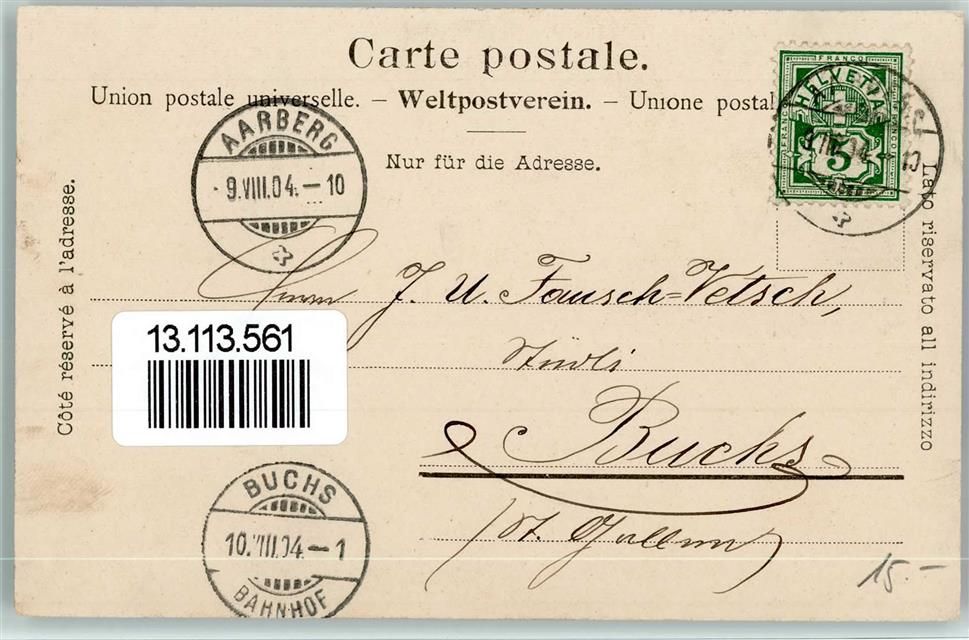 Carte postale.
Union postale universelle. – Weltpostverein. – Unione postal
Nur für die Adresse.
Côté réservé à l'adresse.
Lato riservato all indirizzo
FRANCO
HELVETIA
FRANCO
FRANCO
5
AARBERG
9.VIII.04.–10
Herrn J. U. Fausch=Vetsch,
Buchs
(St. Gallen)
13.113.561
BUCHS
10.VIII.04–1
BAHNHOF
15.–